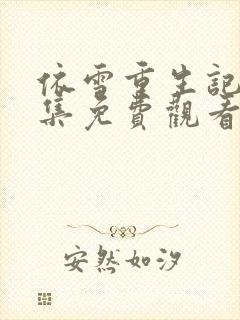 依雪重生記
集免費觀看
安然如汐